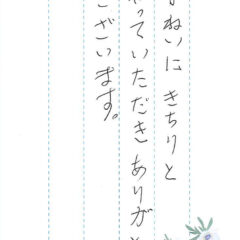 ねいに きちりと
っていただき ありがと
ございます。